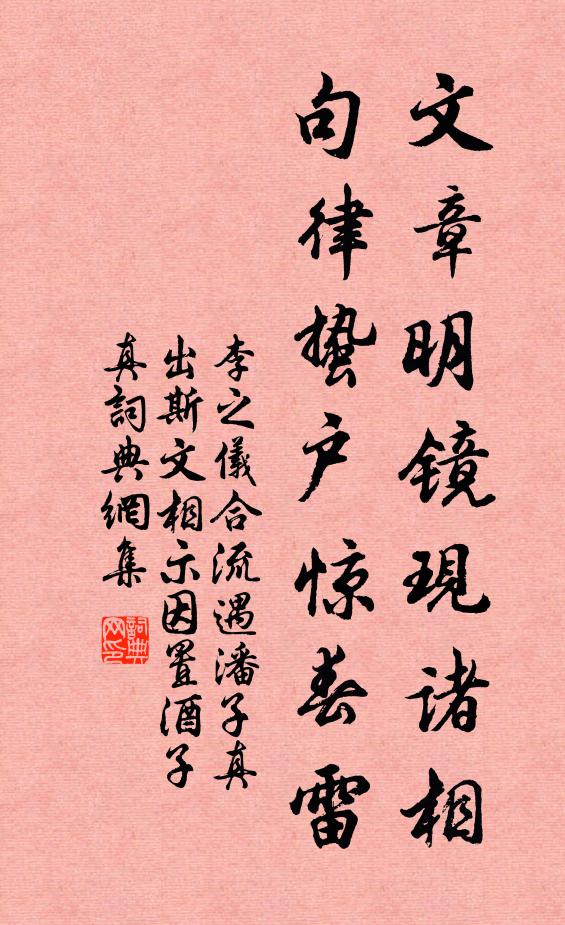 文章明镜現诸相
句律蛰户惊春雷
李之儀合流遇潘子真
出斯文相示因置酒子
真詞典網集
詞典
网印